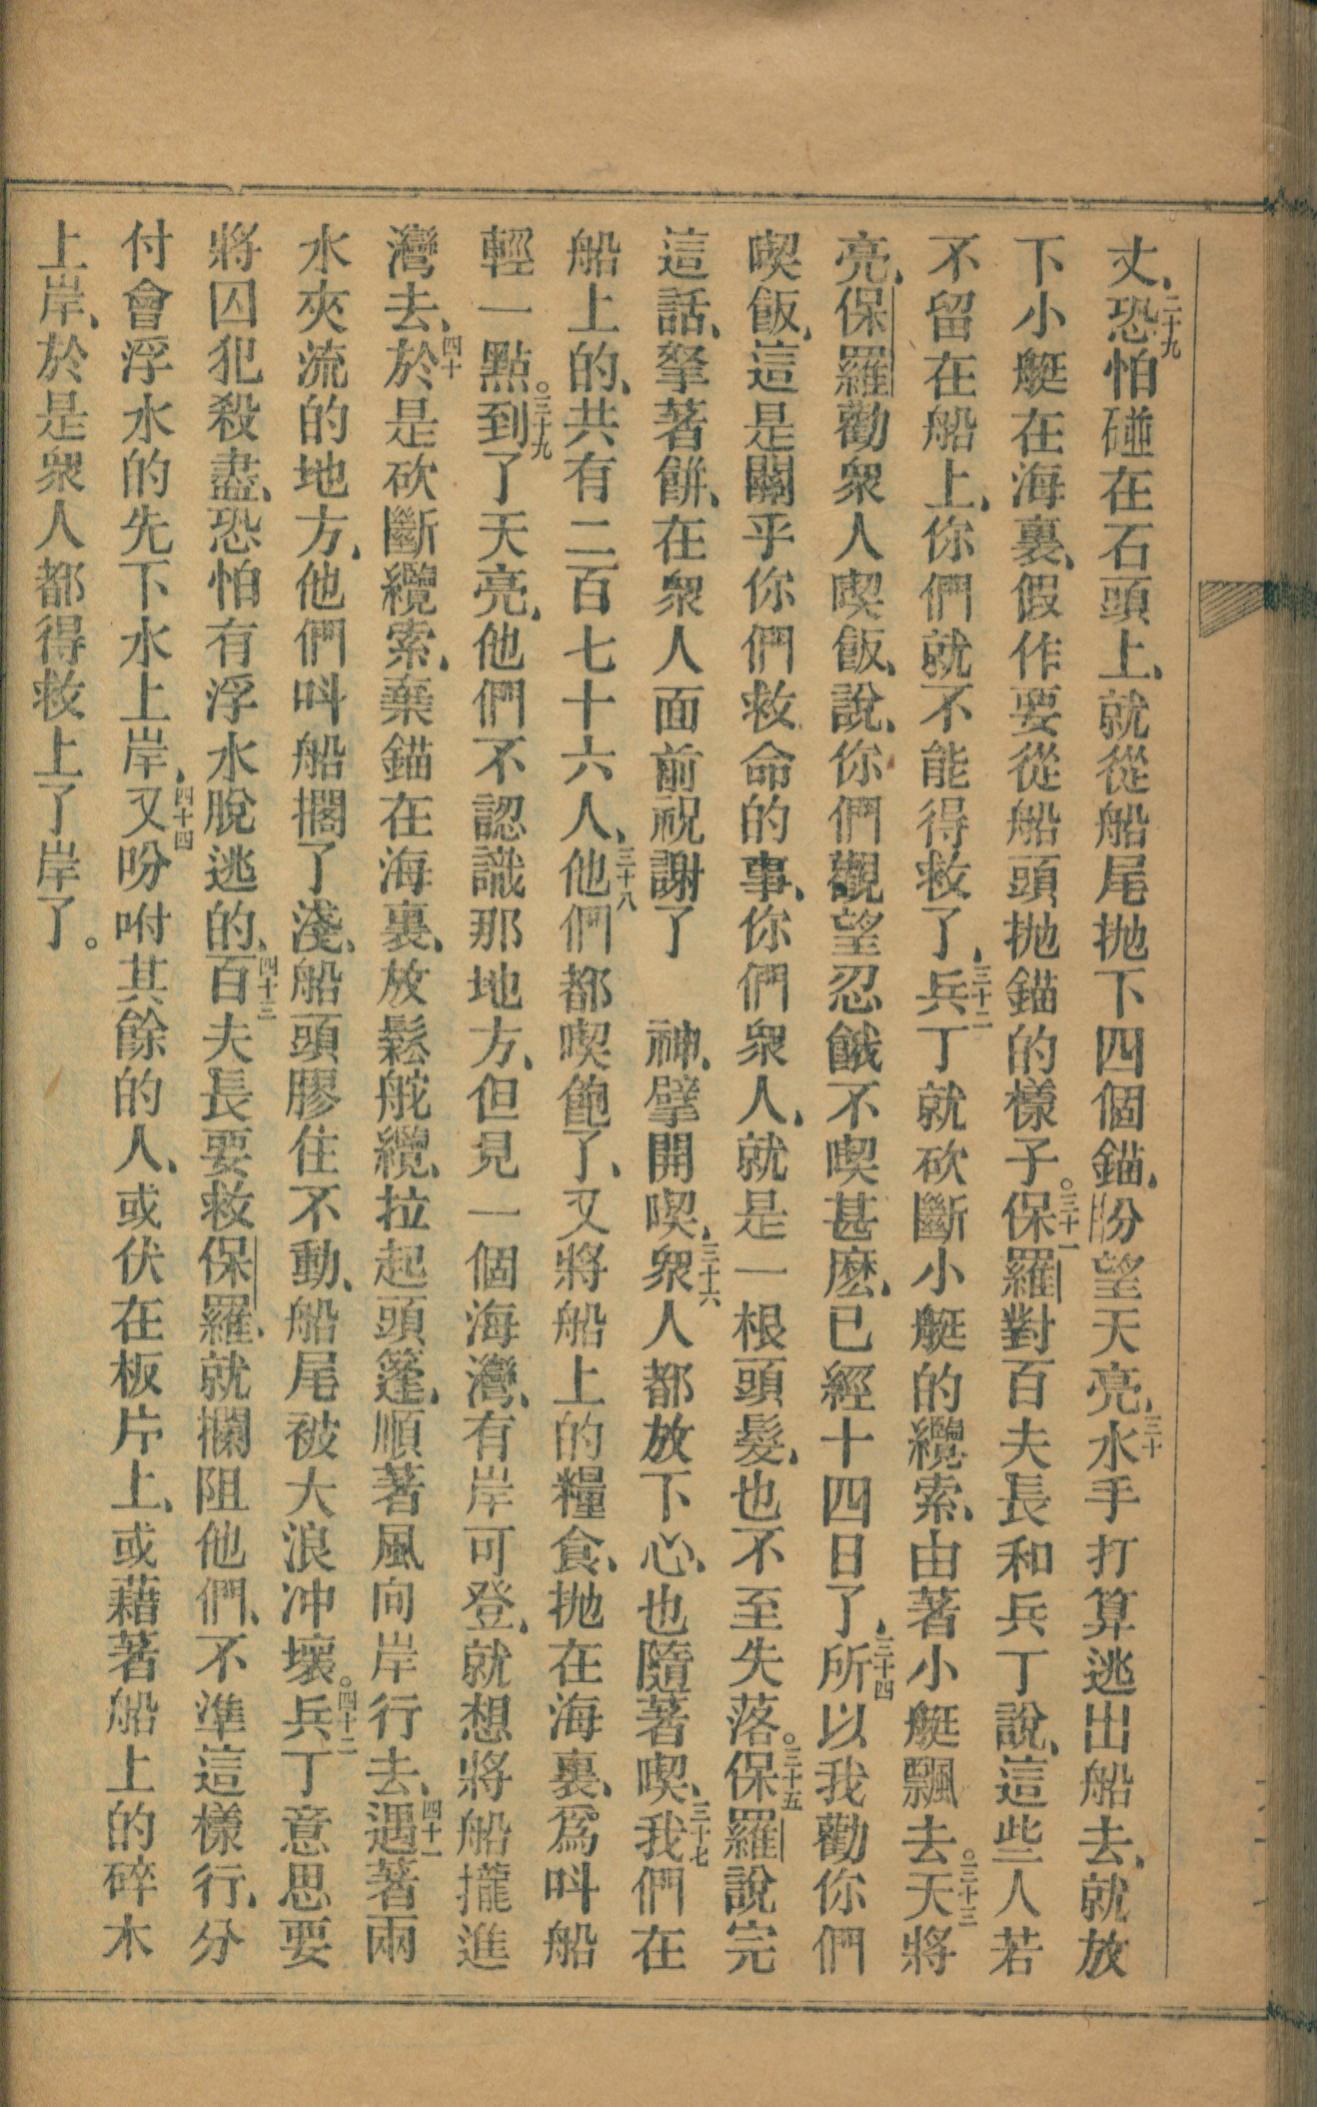 丈、二十九恐怕碰在石頭上、就從船尾拋下四個錨、盼望天亮、三十水手打算逃出船去、就放
下小艇在海裏、假作要從船頭拋錨的樣子。三十一保羅對百夫長和兵丁說、這些人若
不留在船上、你們就不能得救了、三十二兵丁就砍斷小艇的纜索、由著小艇飄去。三十三天將
亮、保羅勸衆人喫飯、說、你們觀望忍餓不喫甚麽、已經十四日了、三十四所以我勸你們
喫飯、這是關乎你們救命的事、你們衆人、就是一根頭髮、也不至失落。三十五保羅說完
這話、拏著餅、在衆人面前祝謝了　神、擘開喫、三十六衆人都放下心、也隨著喫、三十七我們在
船上的、共有二百七十六人、三十八他們都喫飽了、又將船上的糧食、拋在海裏、爲呌船
輕一點。三十九到了天亮、他們不認識那地方、但見一個海灣、有岸可登、就想將船攏進
灣去、四十於是砍斷纜索、棄錨在海裏、放鬆舵纜、拉起頭篷、順著風向岸行去、四十一遇著兩
水夾流的地方、他們呌船擱了淺、船頭膠住不動、船尾被大浪冲壞。四十二兵丁意思要
將囚犯殺盡、恐怕有浮水脫逃的、四十三百夫長要救保羅、就攔阻他們、不準這樣行、分
付會浮水的先下水上岸、四十四又吩咐其餘的人、或伏在板片上、或藉著船上的碎木
上岸、於是衆人都得救上了岸了。